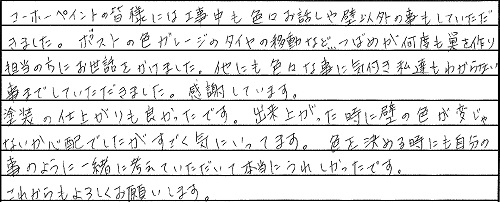 コーホーペイントの皆様には工事中も色々お話しや壁以外の事もしていただ
きました。ポストの色ガレージのタイヤの移動など…つばめが何度も巣を作り
担当の方にお世話をかけました。他にも色々な事に気付き私達もわからない
事までしていただきました。感謝しています。
塗装の仕上がりも良かったです。出来上がった時に壁の色が変じゃ
ないか心配でしたがすごく気にいってます。色を決める時にも自分の
事のように一緒に考えていただいて本当にうれしかったです。
これからもよろしくお願いします。